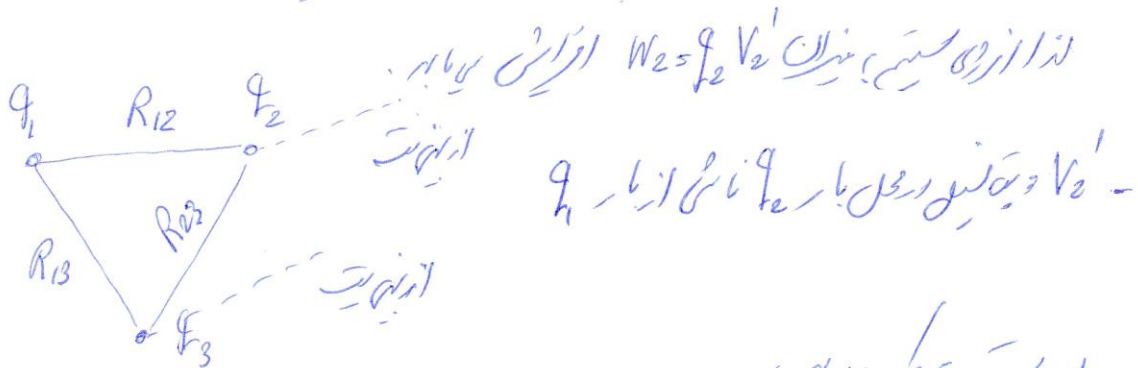 لذا انرژی سیستم به میزان W₂ = q₂ V₂' افزایش می یابد.
q₁ R₁₂ q₂
از بی نهایت
- V₂' = پتانسیل در محل بار q₂ ناشی از بار q₁
R₁₃ R₂₃
از بی نهایت
q₃